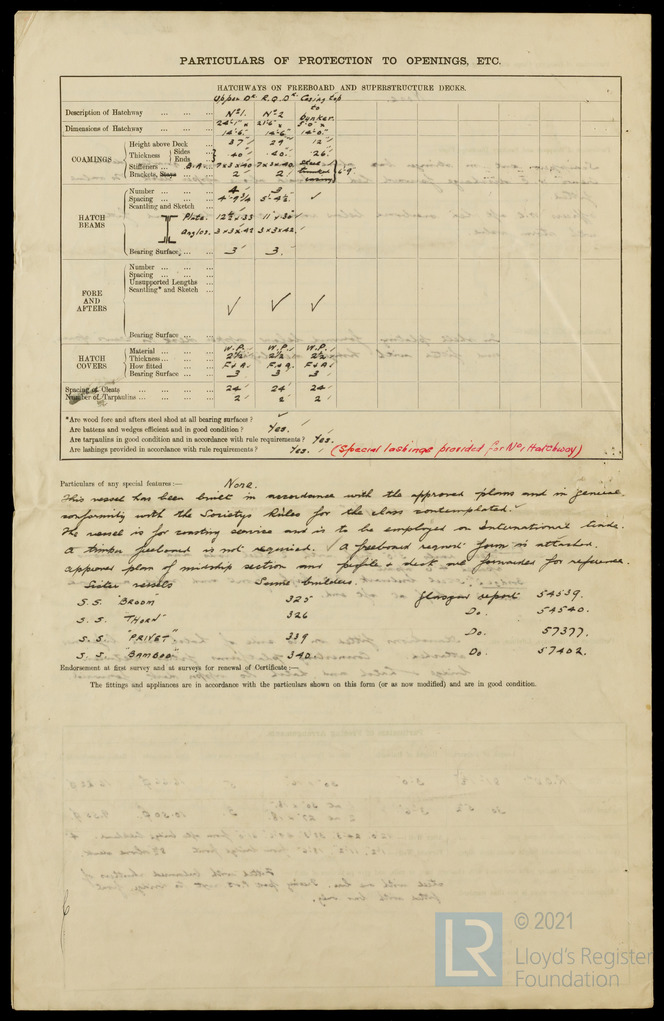 PARTICULARS OF PROTECTION TO OPENINGS, ETC.
HATCHWAYS ON FREEBOARD AND SUPERSTRUCTURE DECKS.
Upper Dk. R.Q.Dk. Casing top
Description of Hatchway ... ... ... No 1. No 2 to Bunker.
Dimensions of Hatchway ... ... 24'-1" x 14'-6" 21'-6" x 14'-6" 5'-0" x 14'-0"
COAMINGS
Height above Deck ... 37" 29" 12"
Thickness { Sides ... Ends ... .40" .40" .26"
Stiffeners ... B.A. 7x3x.40 7x3x.40
Brackets, Stays ... ... 2 2
HATCH BEAMS
Number ... ... ... 4 3
Spacing ... ... ... 4'-9 3/4 5'-4 1/2 ✓
Scantling and Sketch ...
Plate. 12 1/2 x .33 11 x .30
Angles. 3x3x.42 3x3x.42
Bearing Surface ... ... 3 3
FORE AND AFTERS
Number ... ... ...
Spacing ... ... ...
Unsupported Lengths ...
Scantling* and Sketch ...
✓ ✓ ✓
Bearing Surface ... ...
HATCH COVERS
Material ... ... ... W.P. W.P. W.P.
Thickness ... ... ... 2 1/2 2 1/2 2 1/2
How fitted ... ... F&A F&A F&A
Bearing Surface ... ... 3 3 3
Spacing of Cleats ... ... ... ... 24" 24" 24"
Number of Tarpaulins ... ... ... 2 2 2
*Are wood fore and afters steel shod at all bearing surfaces? ✓
Are battens and wedges efficient and in good condition? Yes.
Are tarpaulins in good condition and in accordance with rule requirements? Yes.
Are lashings provided in accordance with rule requirements? Yes. (Special lashings provided for No 1 Hatchway)
Particulars of any special features:— None.
This vessel has been built in accordance with the approved plans and in general
conformity with the Societys Rules for the class contemplated.
The vessel is for coasting service and is to be employed on International trade.
A timber freeboard is not required. A freeboard request form is attached.
Approved plan of midship section and profile & deck are forwarded for reference.
Sister vessels Same builders.
S.S. "BROOM" 325 Glasgow report 54539.
S.S. "THORN" 326 Do. 54540.
S.S. "PRIVET" 339 Do. 57377.
S.S. "BAMBOO" 340 Do. 57402.
Endorsement at first survey and at surveys for renewal of Certificate:—
The fittings and appliances are in accordance with the particulars shown on this form (or as now modified) and are in good condition.
LR
© 2021
Lloyd's Register
Foundation